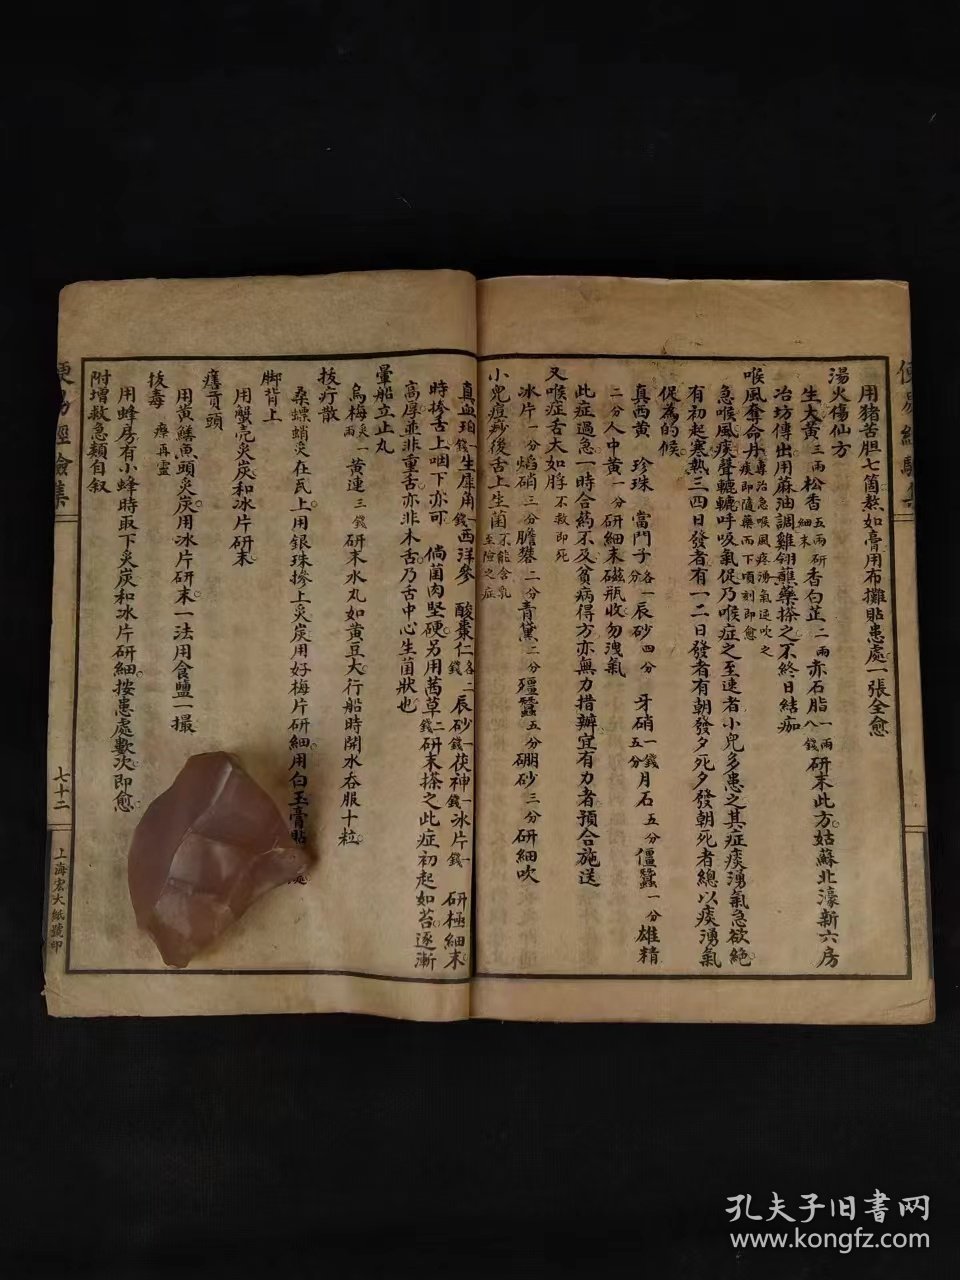 用猪苦胆七箇熬如膏用布攤貼患處一張全愈
湯火傷仙方
生大黃三兩松香五兩研細末香白芷二兩赤石脂一兩八錢研末此方姑蘇北濠新六房
冶坊傳出用蔴油調雞翎蘸藥搽之不終日結痂
喉風奪命丹專治急喉風痰湧氣逆吹之痰即隨藥而下頃刻即愈
急喉風痰聲轆轆呼吸氣促乃喉症之至速者小兒多患之其症痰湧氣急欲絶
有初起寒熱三四日發者有一二日發者有朝發夕死夕發朝死者總以痰湧氣
促為的候
真西黃 珍珠 當門子各一分辰砂四分 牙硝一錢五分月石五分僵蠶一分雄精
二分人中黃一分研細末磁瓶收勿洩氣
此症過急一時合葯不及貧病得方亦無力措辦宜有力者預合施送
又喉症舌大如脬不救即死
冰片一分焰硝三分膽礬二分青黛二分殭蠶五分硼砂三分研細吹
小兒痘痧後舌上生菌不能含乳至險之症
真血珀錢生犀角一錢西洋參 酸棗仁各二錢辰砂一錢茯神一錢冰片一錢 研極細末
時摻舌上咽下亦可 倘菌肉堅硬另用茜草二錢研末搽之此症初起如苔逐漸
高厚並非重舌亦非木舌乃舌中心生菌狀也
暈船立止丸
烏梅炙一兩 黃連三錢研末水丸如黃豆大行船時開水吞服十粒
拔疔散
桑螵蛸炙在瓦上用銀珠摻上炙炭用好梅片研細用白玉膏貼
脚背上
用蟹壳炙炭和冰片研末
瘄貢頭
用黃鱔魚頭炙炭用冰片研末一法用食鹽一撮
拔毒 瘰再靈
用蜂房有小蜂時取下炙炭和冰片研細按患處數次即愈
附增救急類自叙
便易經驗集
七十二
上海宏大紙號印
便易經驗集
孔夫子旧書网
www.kongfz.com